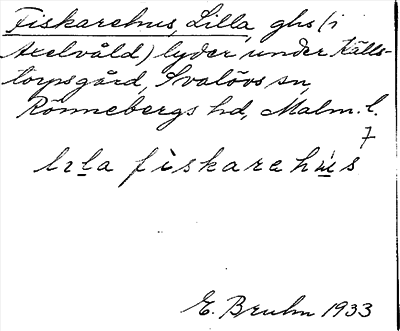 Fiskarehus, Lilla, ghs (i
Axelvåld) lyder under Källs-
torpsgård, Svalövs sn,
Rönnebergs hd, Malm. l.
7
fiskareh
E. Bruhn 1933